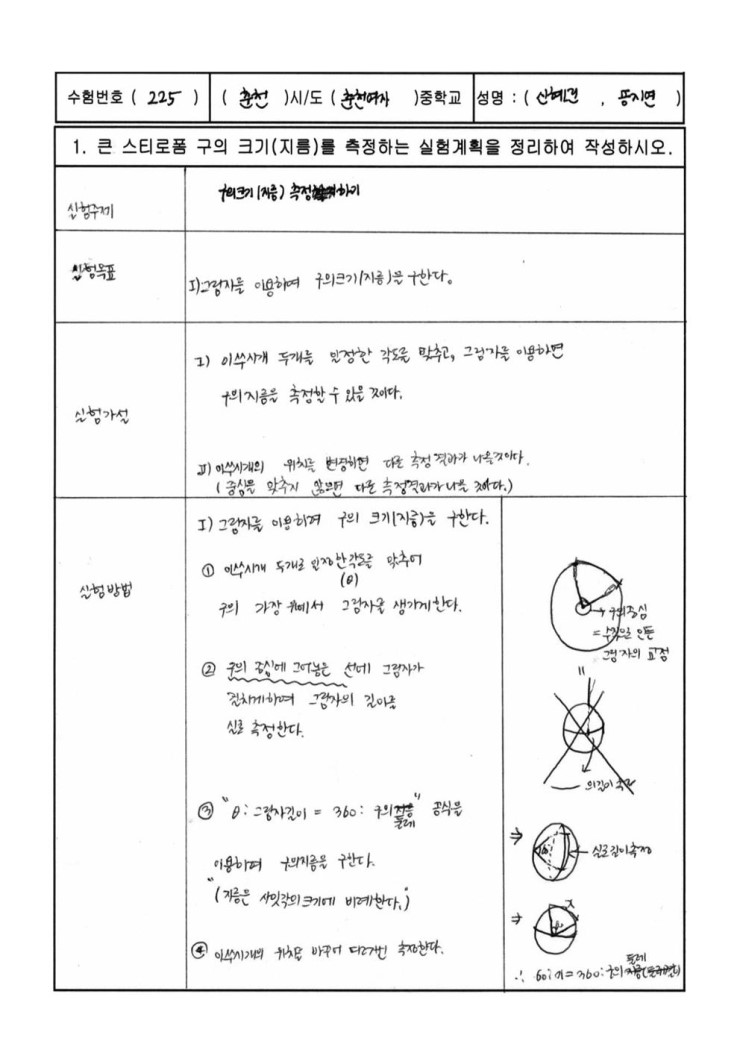 수험번호 ( 225 ) ( 춘천 )시/도 ( 춘천여자 )중학교 성명 : ( 신혜건 , 뭉지연 )
1. 큰 스티로폼 구의 크기(지름)를 측정하는 실험계획을 정리하여 작성하시오.
실험주제
구의크기(지름) 측정하기
실험목표
I)그림자를 이용하여 구의크기(지름)을 구한다.
실험가설
I) 이쑤시개 두개를 일정한 각도를 맞추고, 그림자를 이용하면
구의지름을 측정할 수 있을 것이다.
II) 이쑤시개의 위치를 변경하면 다른 측정결과가 나올것이다.
(중심을 맞추지 않으면 다른 측정결과가 나올 것이다.)
실험방법
I) 그림자를 이용하여 구의 크기(지름)을 구한다.
① 이쑤시개 두개로 일정한각도를 맞추어
(θ)
구의 가장 위에서 그림자를 생기게한다.
② 구의 중심에 그어놓은 선에 그림자가
겹치게하여 그림자의 길이를
실로 측정한다.
③ "θ : 그림자길이 = 360 : 구의둘레" 공식을
이용하여 구의지름을 구한다.
"(지름은 사잇각의크기에 비례한다.)"
④ 이쑤시개의 위치를 바꾸어 여러번 측정한다.
→ 구의중심
= 수직으로 만든
그림자의 교점
의길이 측정
⇒
← 실로길이측정
⇒
x
∴ 60 : x = 360 : 구의 둘레